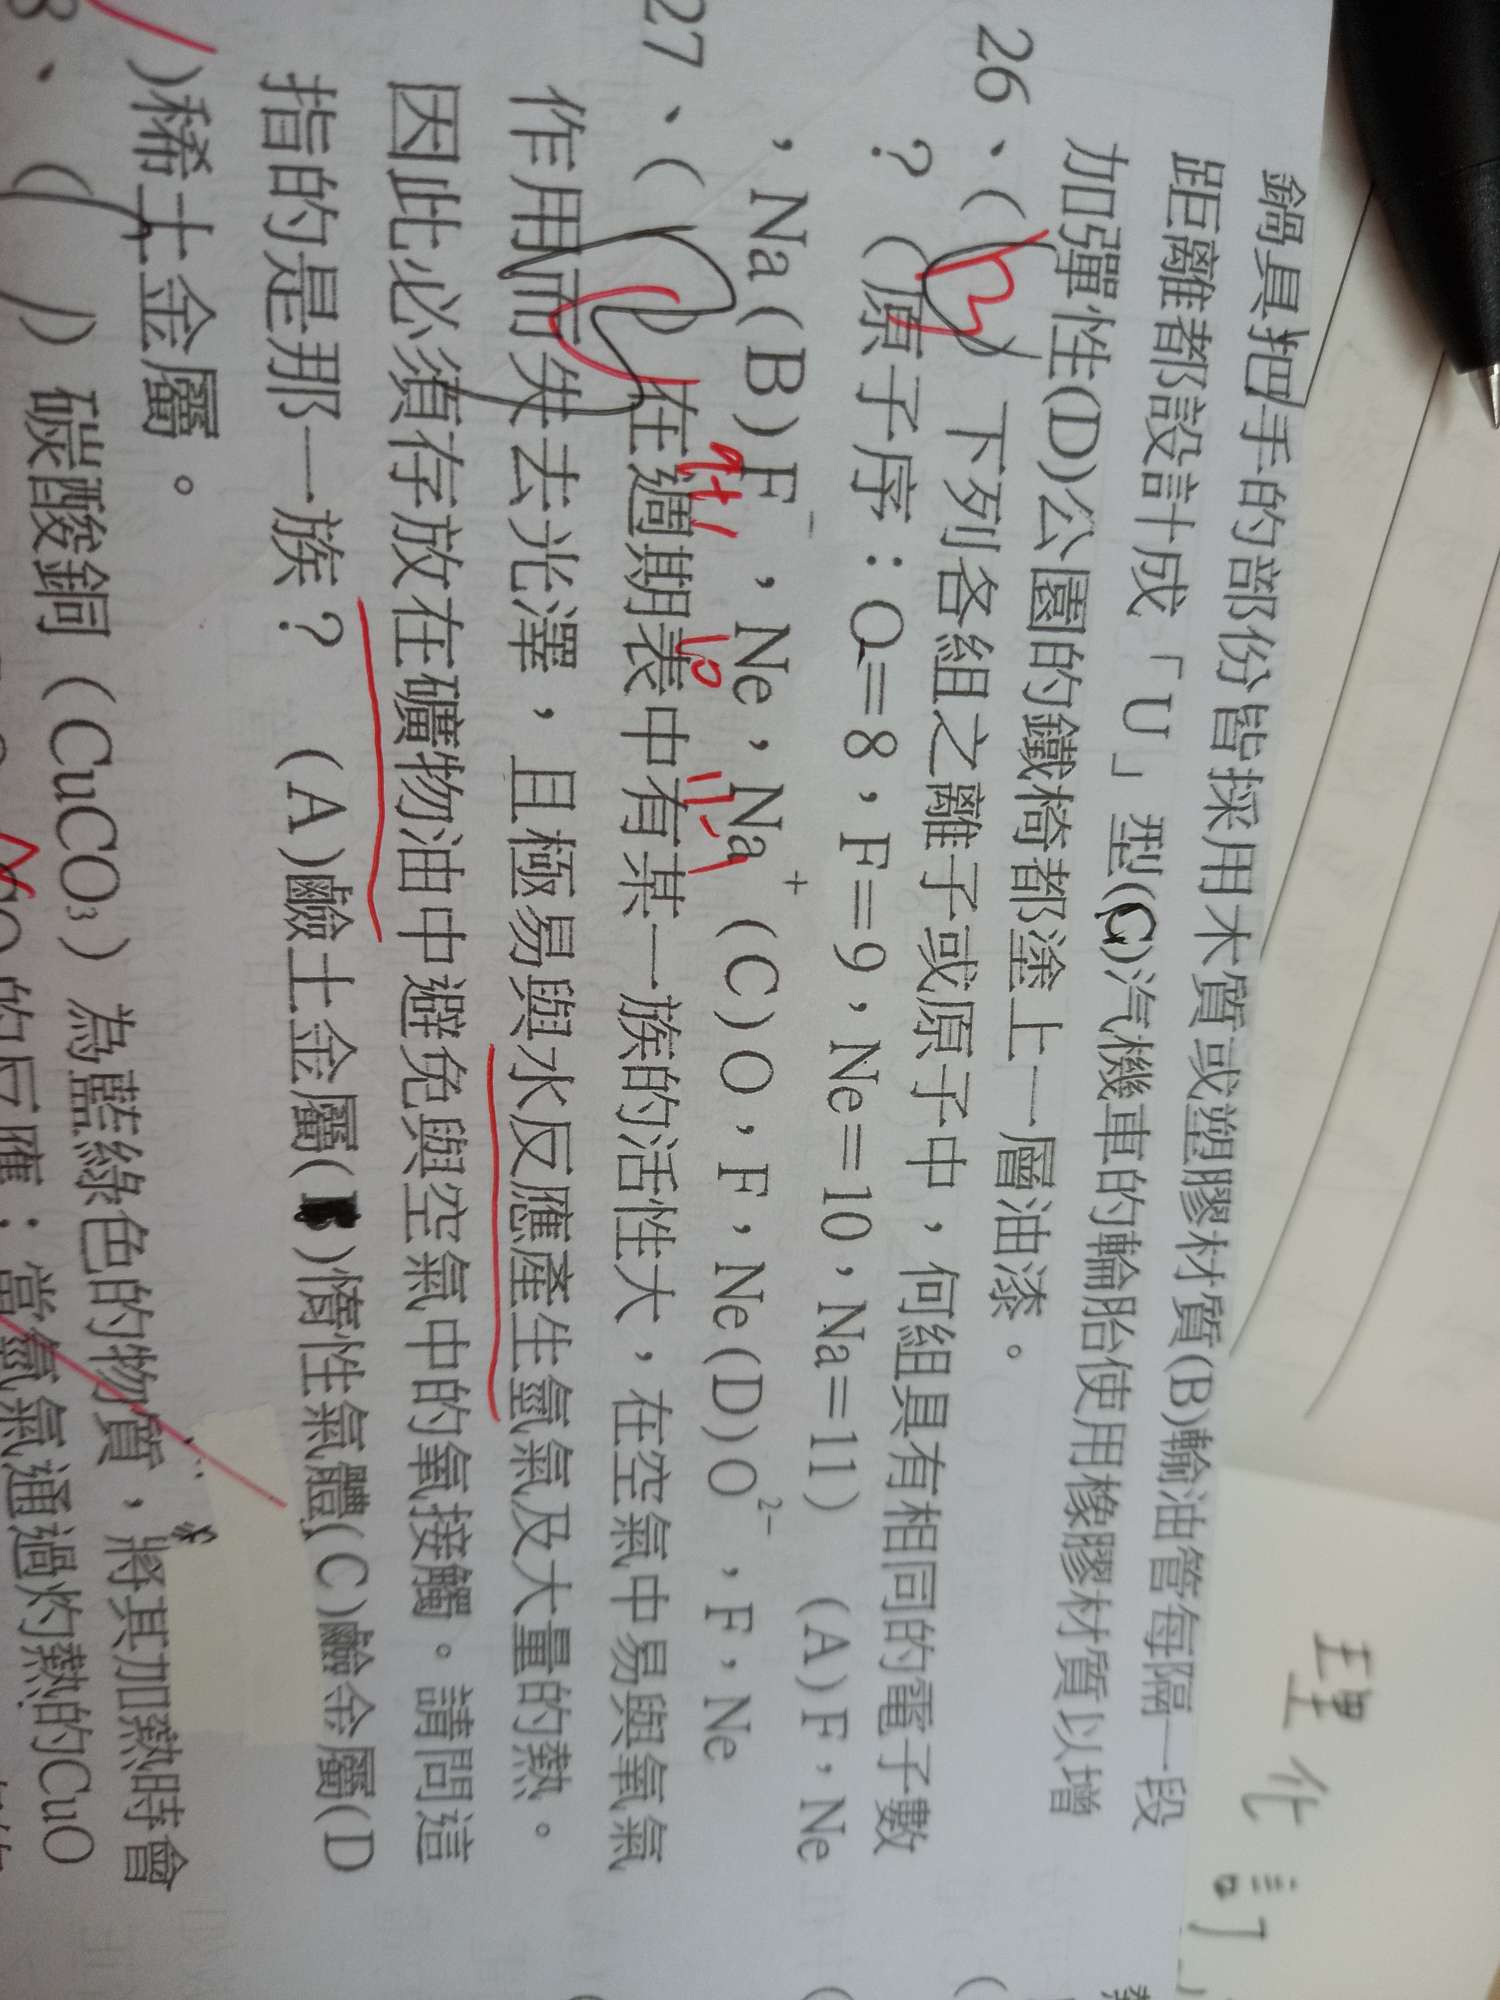 鍋具把手的部份皆採用木質或塑膠材質(B)輸油管每隔一段
距離都設計成「U」型(C)汽機車的輪胎使用橡膠材質以增
加彈性(D)公園的鐵椅都塗上一層油漆。
26、(B) 下列各組之離子或原子中，何組具有相同的電子數
？（原子序：O=8，F=9，Ne=10，Na=11） (A)F，Ne
，Na(B)F⁻，Ne，Na⁺(C)O，F，Ne(D)O²⁻，F，Ne
9+1 10 11-1
27、( ) 在週期表中有某一族的活性大，在空氣中易與氧氣
作用而失去光澤，且極易與水反應產生氫氣及大量的熱。
因此必須存放在礦物油中避免與空氣中的氧接觸。請問這
指的是那一族？ (A)鹼土金屬(B)惰性氣體(C)鹼金屬(D
)稀土金屬。
8、( ) 碳酸銅（CuCO₃）為藍綠色的物質，將其加熱時會
的反應：當氫氣通過灼熱的CuO
理化訂